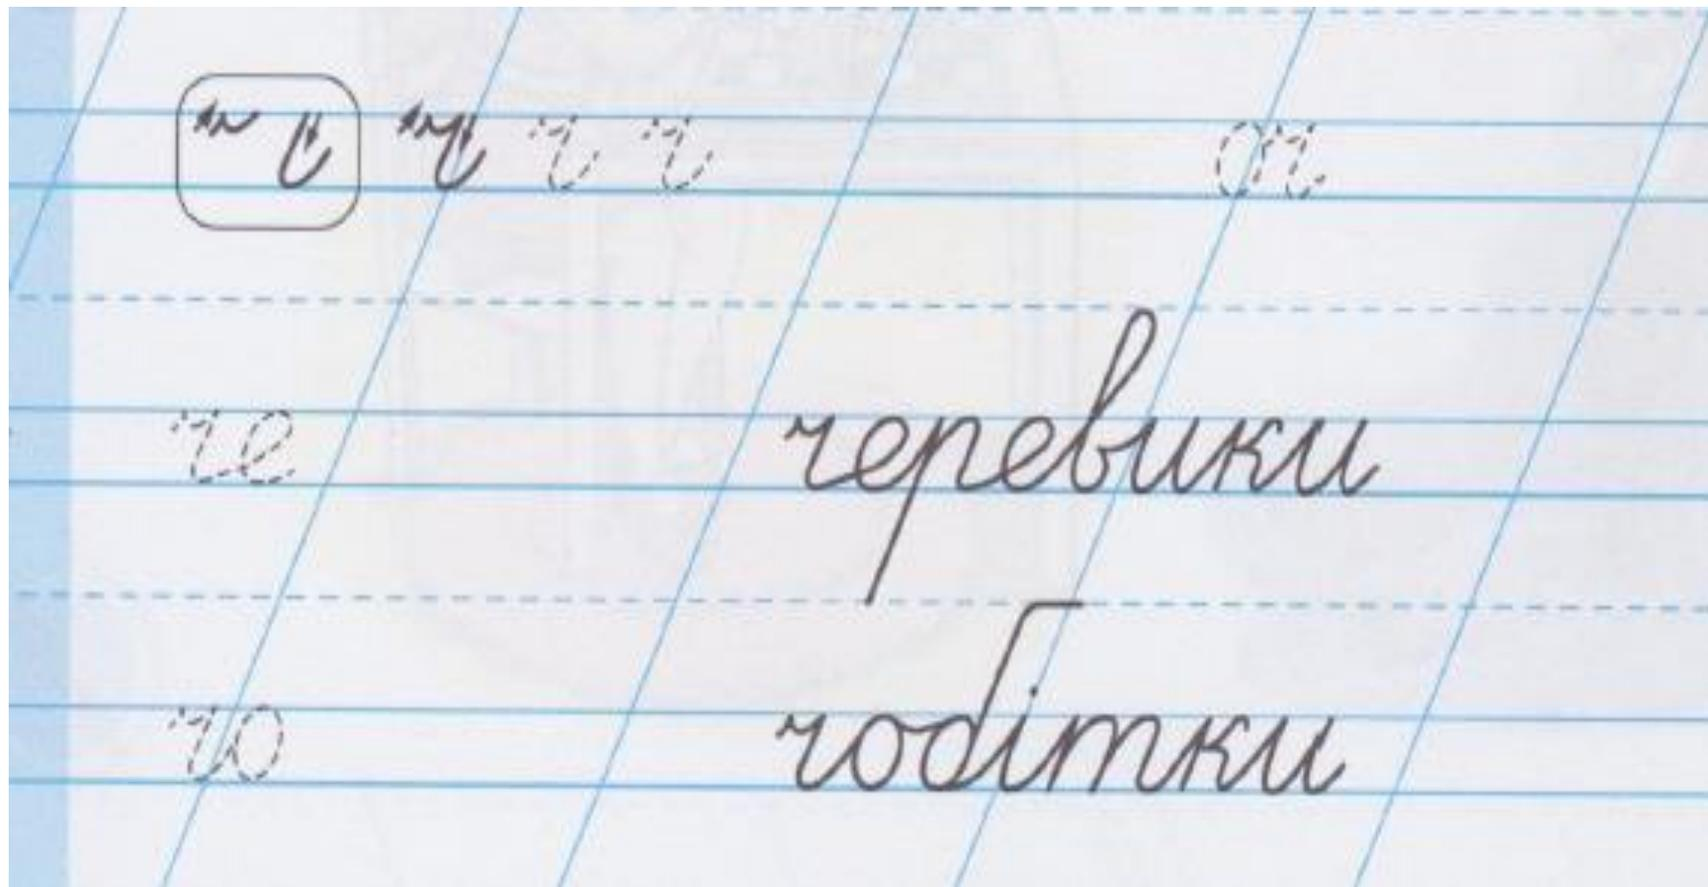 ч ч ч ач
че черевики
чо чобітки